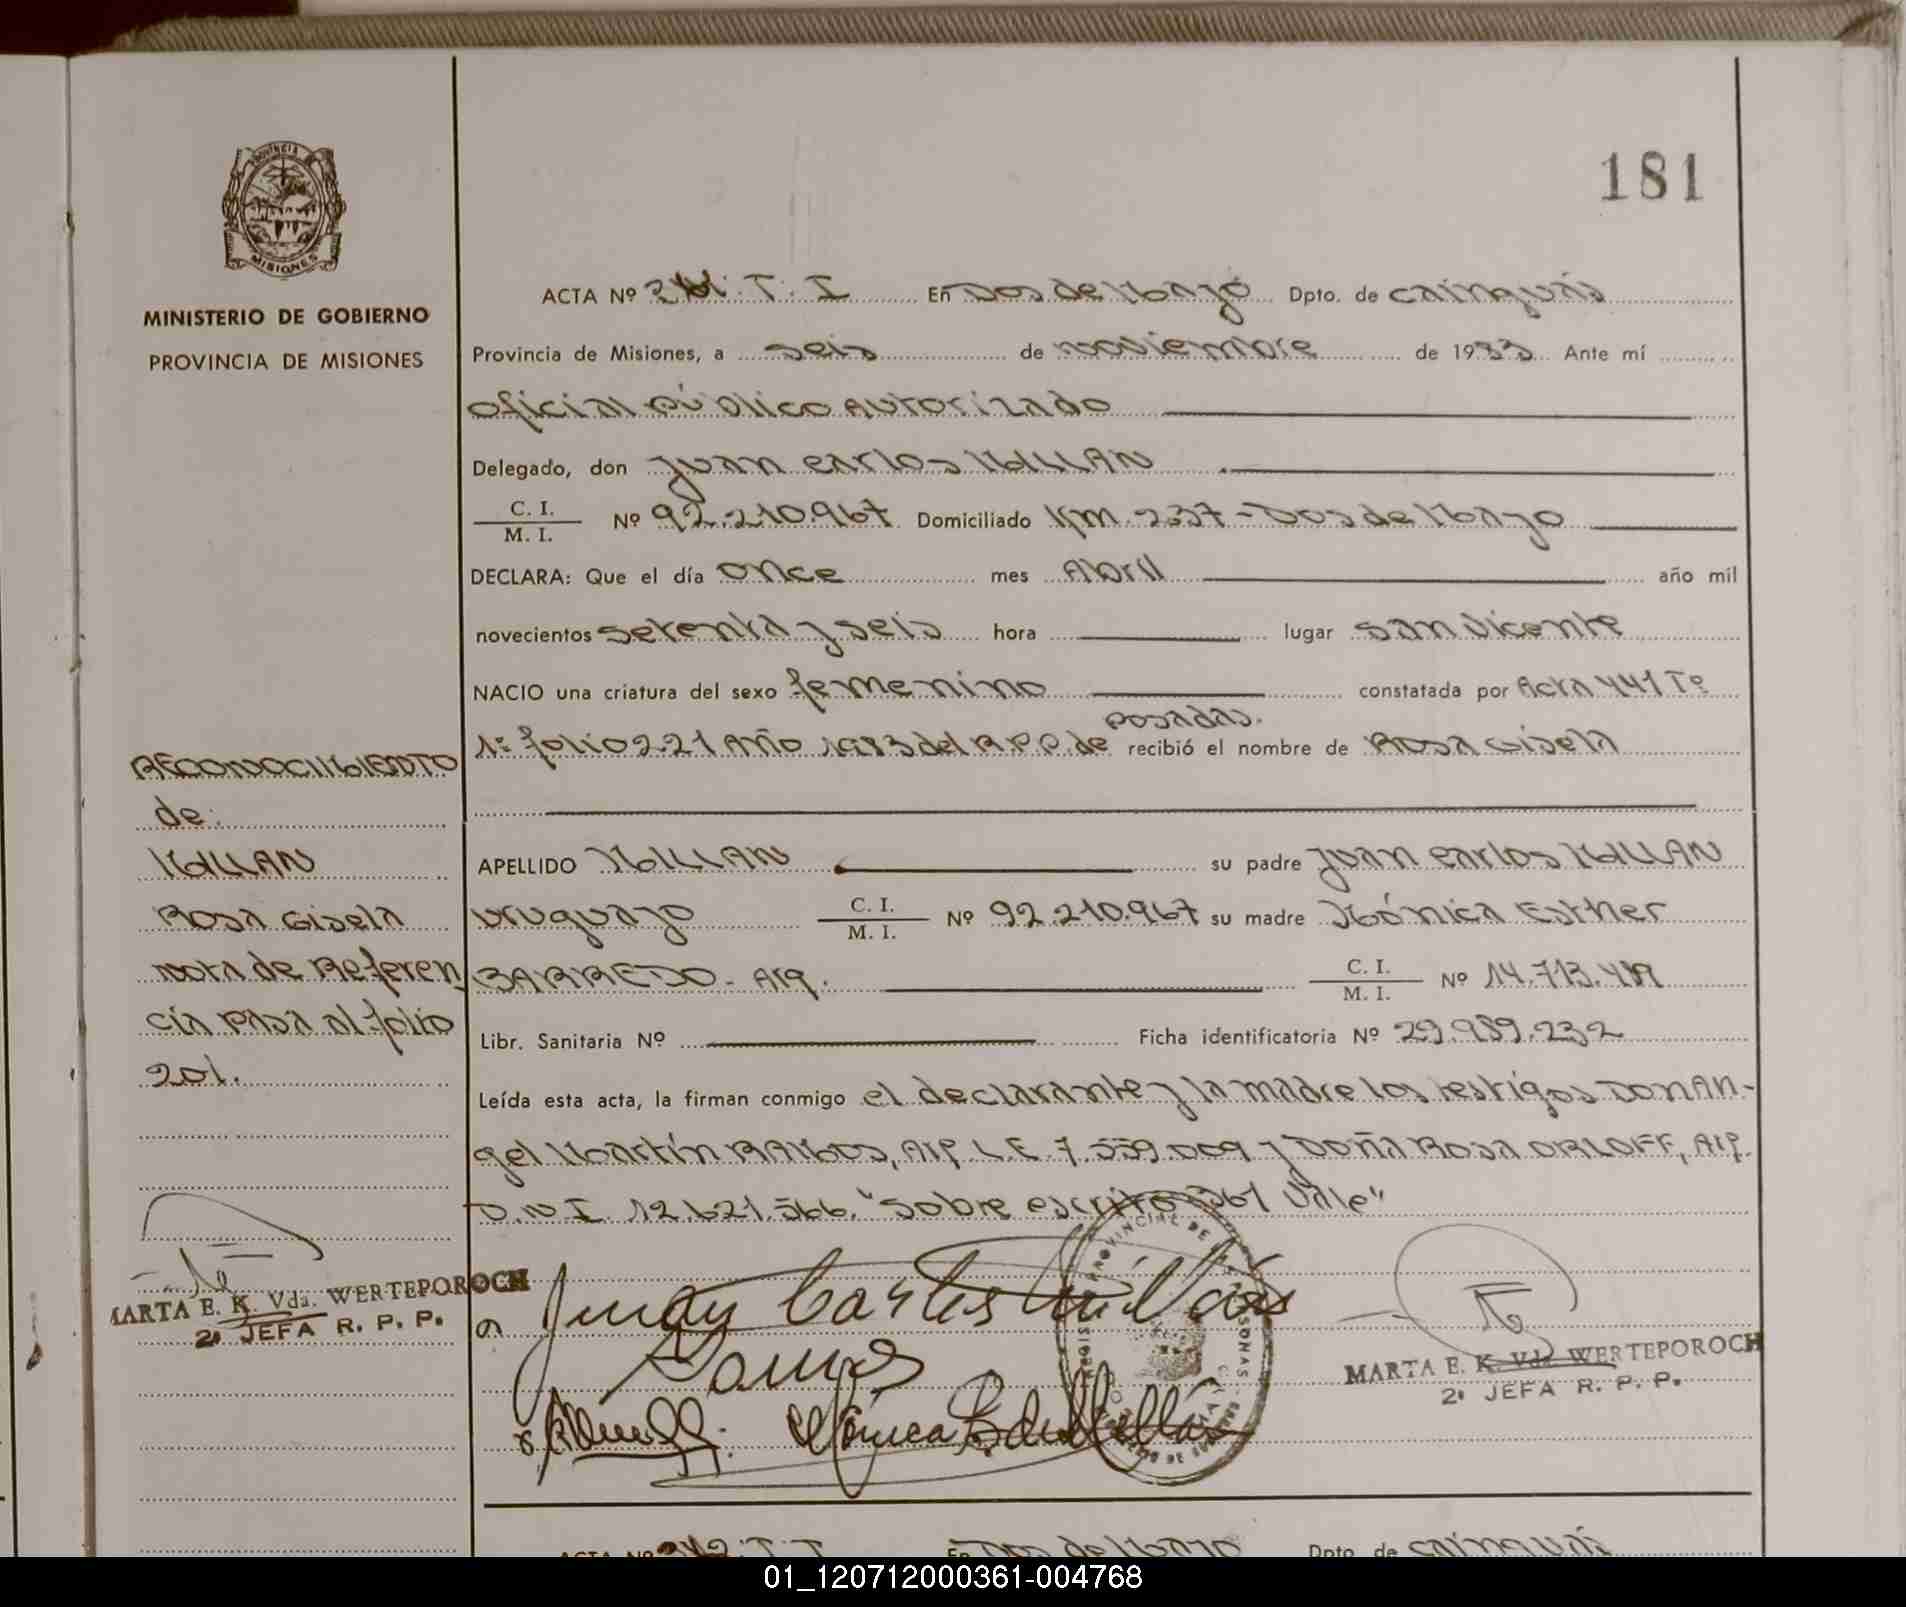 181
PROVINCIA
MISIONES
MINISTERIO DE GOBIERNO
PROVINCIA DE MISIONES
ACTA Nº T. I En Dos de Mayo Dpto. de Cainguás
Provincia de Misiones, a seis de noviembre de 19 Ante mí
oficial público autorizado
Delegado, don Juan Carlos MILLAN
C. I.
M. I.
Nº 92.210.967 Domiciliado Km. 237 - Dos de Mayo
DECLARA: Que el día once mes Abril año mil
novecientos setenta y seis hora lugar San Vicente
NACIO una criatura del sexo femenino constatada por Acta 441 Tº
posadas.
1º folio 221 Año 1983 del R.P.P. de recibió el nombre de Rosa Gisela
APELLIDO MILLAN su padre Juan Carlos MILLAN
uruguayo C. I. Nº 92.210.967 su madre Mónica Esther
M. I.
BARREDO - Arg. C. I. Nº 14.713.
M. I.
Libr. Sanitaria Nº Ficha identificatoria Nº 29.989.232
Leída esta acta, la firman conmigo el declarante y la madre los testigos DON AN-
gel Martín RAMOS, Arg. L.E. 7.559.009 y DOÑA Rosa ORLOFF, Arg.
D.N.I. 12.621.566. "Sobre escrito 361 Vale"
RECONOCIMIENTO
de:
MILLAN
Rosa Gisela
Nota de Referen
cia pasa al folio
201.
MARTA E. K. Vda. WERTEPOROCH
2ª JEFA R. P. P.
Juan Carlos Millán
Ramos
Mónica B de Millán
MARTA E. K. Vda. WERTEPOROCH
2ª JEFA R. P. P.
ACTA Nº T. I En Dos de Mayo Dpto. de Cainguás
01_120712000361-004768